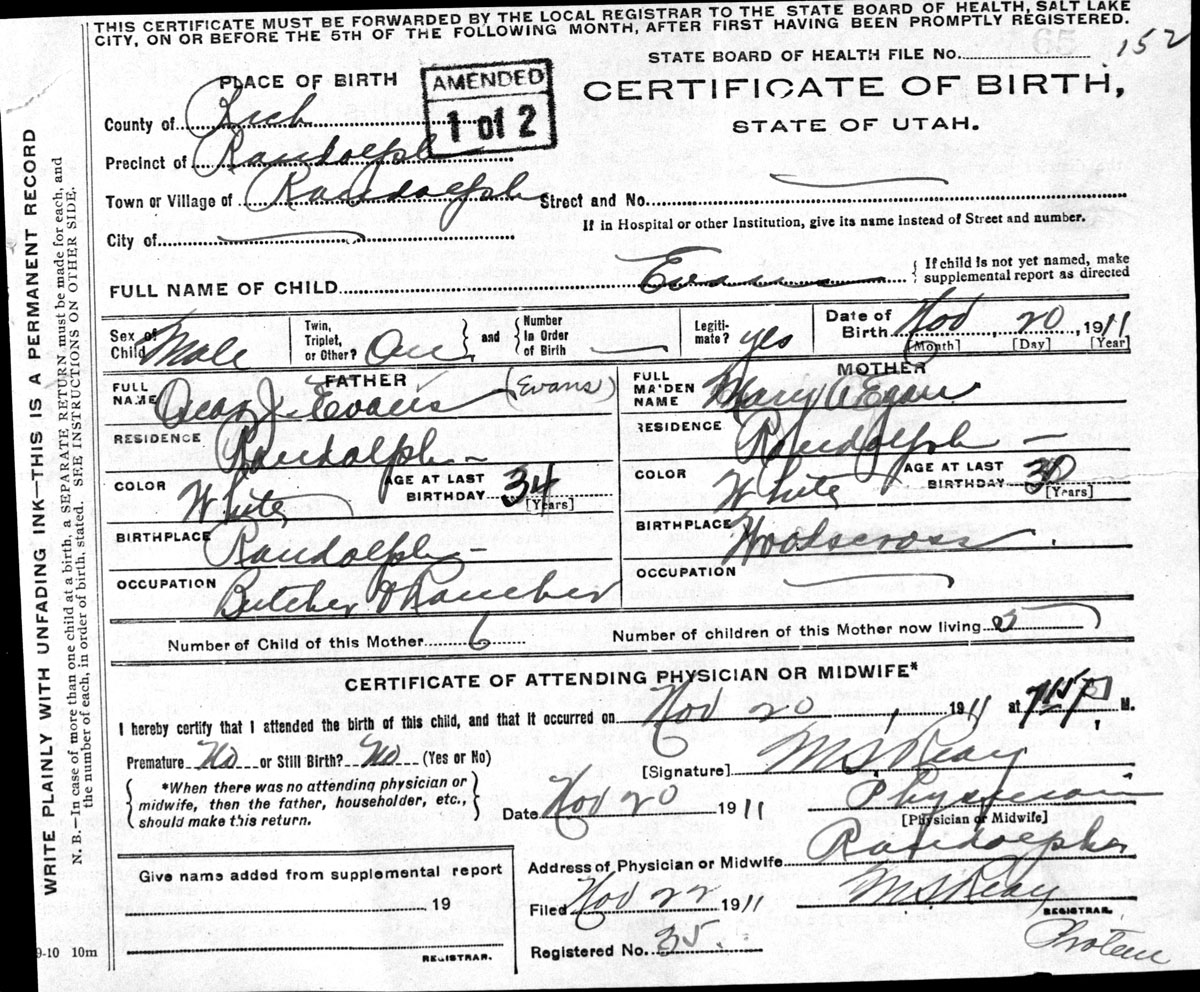 THIS CERTIFICATE MUST BE FORWARDED BY THE LOCAL REGISTRAR TO THE STATE BOARD OF HEALTH, SALT LAKE
CITY, ON OR BEFORE THE 5TH OF THE FOLLOWING MONTH, AFTER FIRST HAVING BEEN PROMPTLY REGISTERED.
65
152
STATE BOARD OF HEALTH FILE No.
PLACE OF BIRTH
AMENDED
1 of 2
CERTIFICATE OF BIRTH,
STATE OF UTAH.
County of Rich
Precinct of Randolph
Town or Village of Randolph Street and No.
If in Hospital or other Institution, give its name instead of Street and number.
City of
FULL NAME OF CHILD Evans { If child is not yet named, make supplemental report as directed
Sex of Child Male
Twin, Triplet, or Other? One } and { Number in Order of Birth
Legitimate? yes
Date of Birth Nov 20, 1911
[Month] [Day] [Year]
FATHER
FULL NAME Oscar J. Evans (Evans)
RESIDENCE Randolph
COLOR White AGE AT LAST BIRTHDAY 34 [Years]
BIRTHPLACE Randolph
OCCUPATION Butcher & Rancher
MOTHER
FULL MAIDEN NAME Mary A Egan
RESIDENCE Randolph
COLOR White AGE AT LAST BIRTHDAY 30 [Years]
BIRTHPLACE Woodscross
OCCUPATION
Number of Child of this Mother 6 Number of children of this Mother now living 5
CERTIFICATE OF ATTENDING PHYSICIAN OR MIDWIFE*
I hereby certify that I attended the birth of this child, and that it occurred on Nov 20, 1911 at M.
Premature No or Still Birth? No (Yes or No)
[Signature] M S Reay
{ *When there was no attending physician or midwife, then the father, householder, etc., should make this return. }
Date Nov 20 1911 Physician
[Physician or Midwife]
Address of Physician or Midwife Randolph
Give name added from supplemental report
19
REGISTRAR.
Filed Nov 22 1911 M S Reay
REGISTRAR.
Registered No. 35.
Protem
9-10 10m
WRITE PLAINLY WITH UNFADING INK—THIS IS A PERMANENT RECORD
N. B.—In case of more than one child at a birth, a SEPARATE RETURN must be made for each, and
the number of each, in order of birth, stated. SEE INSTRUCTIONS ON OTHER SIDE.